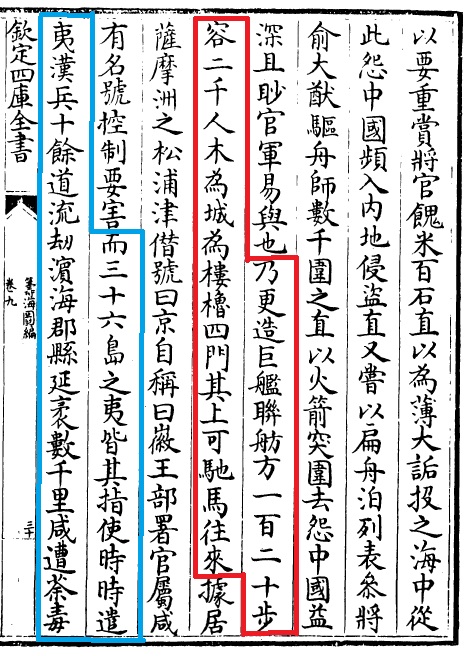 以要重賞將官餽米百石直以為薄大詬投之海中從
此怨中國頻入內地侵盜直又嘗以扁舟泊列表叅將
俞大猷驅舟師數千圍之直以火箭突圍去怨中國益
深且眇官軍易與也乃更造巨艦聯舫方一百二十步
容二千人木為城為樓櫓四門其上可馳馬往來據居
薩摩洲之松浦津僣號曰京自稱曰徽王部署官屬咸
有名號控制要害而三十六島之夷皆其指使時時遣
夷漢兵十餘道流刼濵海郡縣延袤數千里咸遭荼毒
欽定四庫全書
籌海圖編
卷九